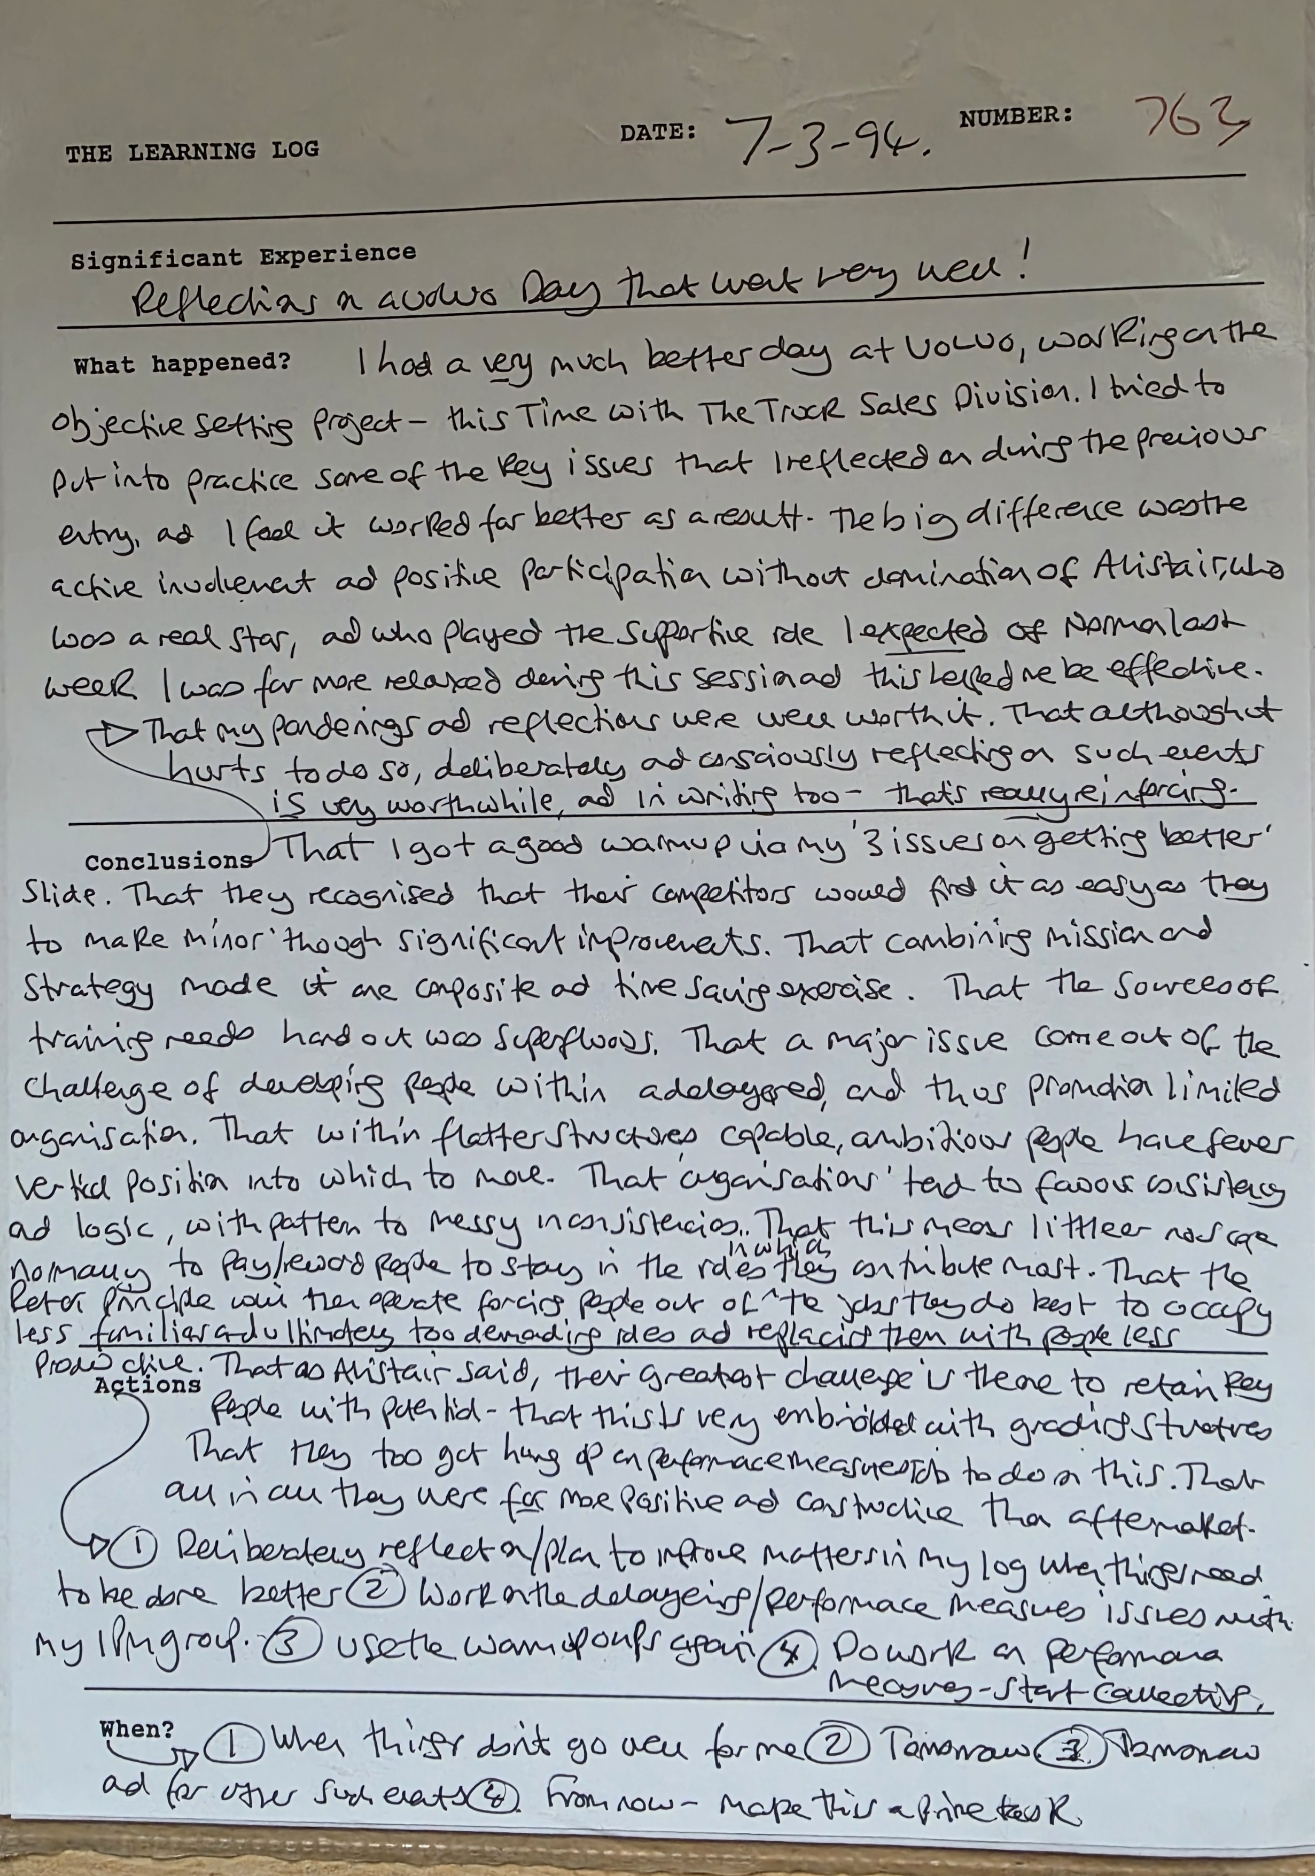 THE LEARNING LOG DATE: 7-3-94. NUMBER: 763
Significant Experience
Reflections on a Volvo Day that went very well!
What happened? I had a very much better day at VOLVO, working on the
objective setting project - this Time with The Truck Sales Division. I tried to
put into practice some of the key issues that I reflected on during the previous
entry, ad I feel it worked far better as a result. The big difference was the
active involvement ad positive participation without domination of Alistair, who
was a real star, ad who played the supportive role I expected of Norma last
week. I was far more relaxed during this session ad this helped me be effective.
That my ponderings ad reflections were well worth it. That although it
hurts to do so, deliberately ad consciously reflecting on such events
is very worthwhile, ad in writing too - that's really reinforcing.
Conclusions That I got a good warmup via my '3 issues on getting better'
Slide. That they recognised that their competitors would find it as easy as they
to make 'minor' though significant improvements. That combining mission and
strategy made it one composite ad time saving exercise. That the sources of
training needs hand out was superfluous. That a major issue come out of the
challenge of developing people within a delayered, and thus promotion limited
organisation. That within flatter structures capable, ambitious people have fewer
vertical position into which to move. That 'organisations' tend to favour consistency
ad logic, with pattern to messy inconsistencies. That this means little or no scope
normally to pay/reward people to stay in the roles they contribute most. That the
in which
Peter Principle will then operate forcing people out of the jobs they do best to occupy
less familiar ad ultimately too demanding roles ad replacing them with people less
productive. That as Alistair said, their greatest challenge is the one to retain key
Actions people with potential - that this is very embroided with grading structures
That they too got hung up on performance measures to do on this. That
all in all they were far more positive ad constructive than aftermarket.
① Deliberately reflect on/plan to improve matters in my log when things need
to be done better ② Work on the delayering/performance measures issues with
my IPM group. ③ Use the warm up oups again ④ Do work on performance
measures - start collecting.
When? ① When things don't go well for me ② Tomorrow ③ Tomorrow
ad for other such events ④ From now - make this a prime task